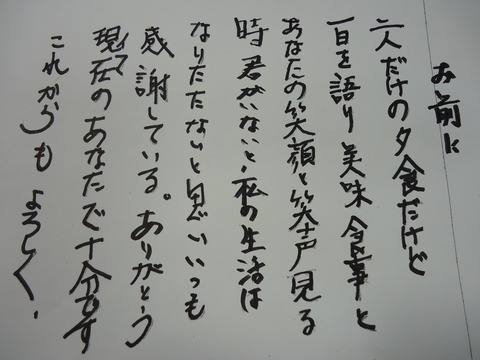 お前に
二人だけの夕食だけど
一日を語り美味食事と
あなたの笑顔と笑声見る
時君がいないと私の生活は
なりたたないと思いいつも
感謝している。ありがとう
現在のあなたで十分です
イマ
これからもよろしく、